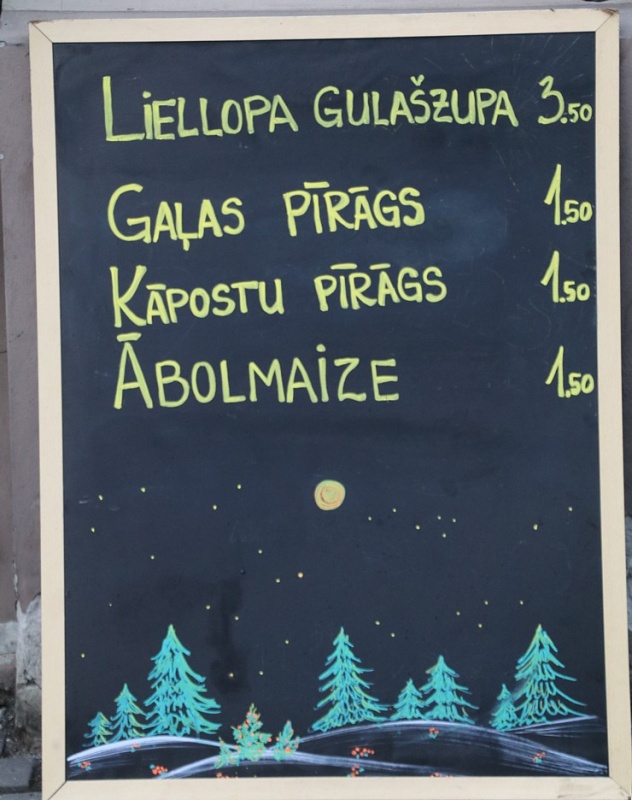 Liellopa gulašzupa 3.50
Gaļas pīrāgs 1.50
Kāpostu pīrāgs 1.50
Ābolmaize 1.50